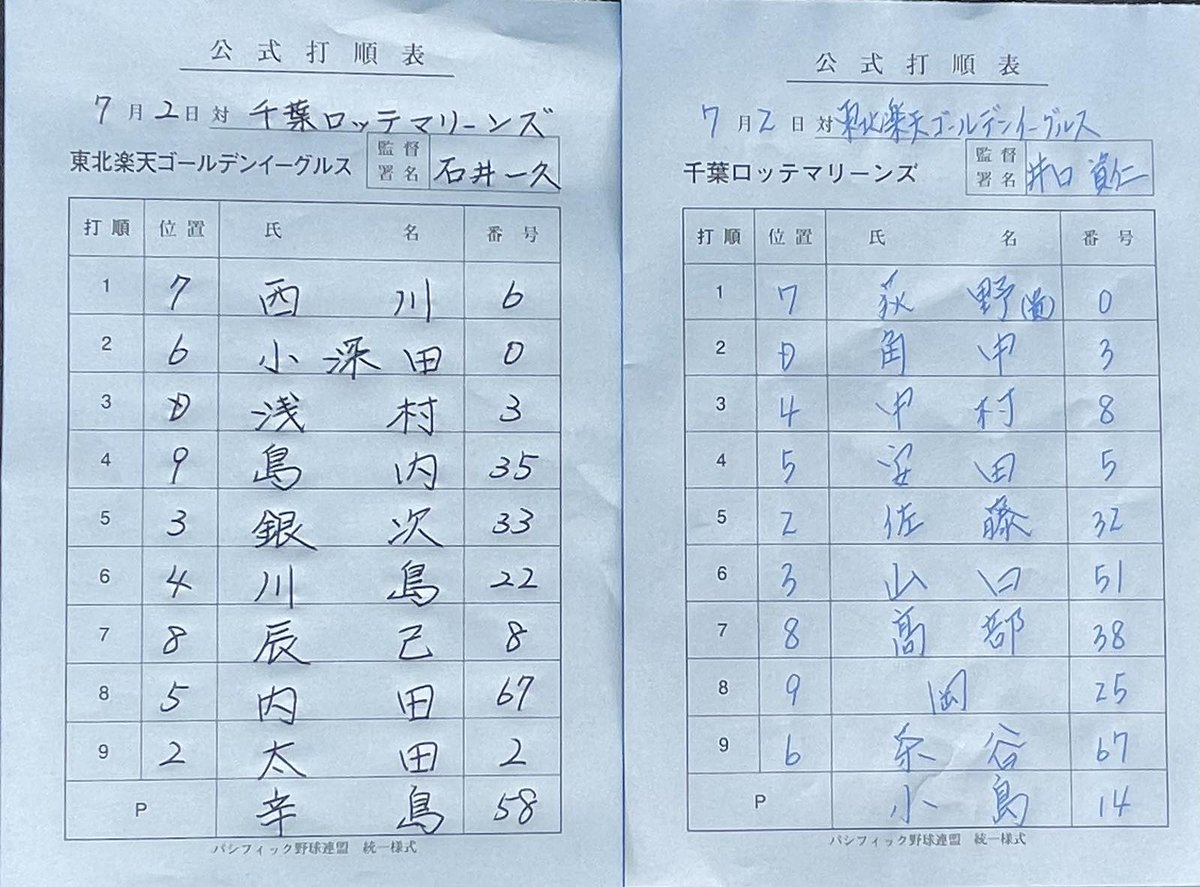 公式打順表
7月2日対 千葉ロッテマリーンズ
東北楽天ゴールデンイーグルス 監督署名 石井一久
打順 位置 氏名 番号
1 7 西川 6
2 6 小深田 0
3 D 浅村 3
4 9 島内 35
5 3 銀次 33
6 4 川島 22
7 8 辰己 8
8 5 内田 67
9 2 太田 2
P 辛島 58
パシフィック野球連盟 統一様式
公式打順表
7月2日対 東北楽天ゴールデンイーグルス
千葉ロッテマリーンズ 監督署名 井口資仁
打順 位置 氏名 番号
1 7 荻野(貴) 0
2 D 角中 3
3 4 中村 8
4 5 安田 5
5 2 佐藤 32
6 3 山口 51
7 8 髙部 38
8 9 岡 25
9 6 茶谷 67
P 小島 14
パシフィック野球連盟 統一様式